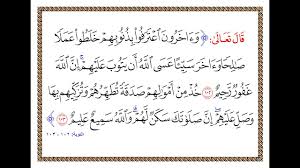 قَالَ تَعَالَى: ﴿وَءَاخَرُونَ ٱعْتَرَفُوا۟ بِذُنُوبِهِمْ خَلَطُوا۟ عَمَلًا
صَٰلِحًا وَءَاخَرَ سَيِّئًا عَسَى ٱللَّهُ أَن يَتُوبَ عَلَيْهِمْ إِنَّ ٱللَّهَ
غَفُورٌ رَّحِيمٌ ﴿١٠٢﴾ خُذْ مِنْ أَمْوَٰلِهِمْ صَدَقَةً تُطَهِّرُهُمْ وَتُزَكِّيهِم بِهَا
وَصَلِّ عَلَيْهِمْ إِنَّ صَلَوٰتَكَ سَكَنٌ لَّهُمْ وَٱللَّهُ سَمِيعٌ عَلِيمٌ ﴿١٠٣﴾﴾
التوبة: ١٠٢ - ١٠٣